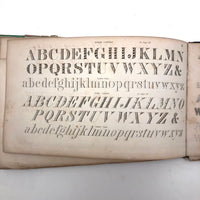 ABCDEFGHIJKLMN
OPQRSTUVWXYZ&
abcdefghijklmnopqrstuvwxyz
ABCDEFGHIJKLMN
OPQRSTUVWXYZ&
abcdefghijklmnopqrstuvwxyz